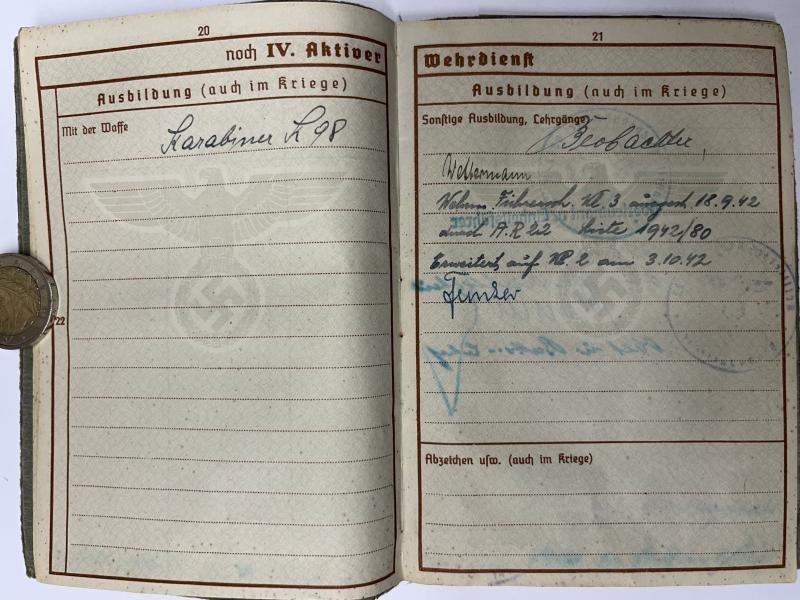 20
noch IV. Aktiver
Ausbildung (auch im Kriege)
Mit der Waffe
Karabiner K 98
22
21
Wehrdienst
Ausbildung (auch im Kriege)
Sonstige Ausbildung, Lehrgänge
Beobachter,
Wettermann
Wehrm. Führersch. Kl. 3 ausgest. 18.9.42
durch A.R 22 Liste 1942/80
Erweitert auf Kl. 2 am 3.10.42
Funker
Abzeichen usw. (auch im Kriege)